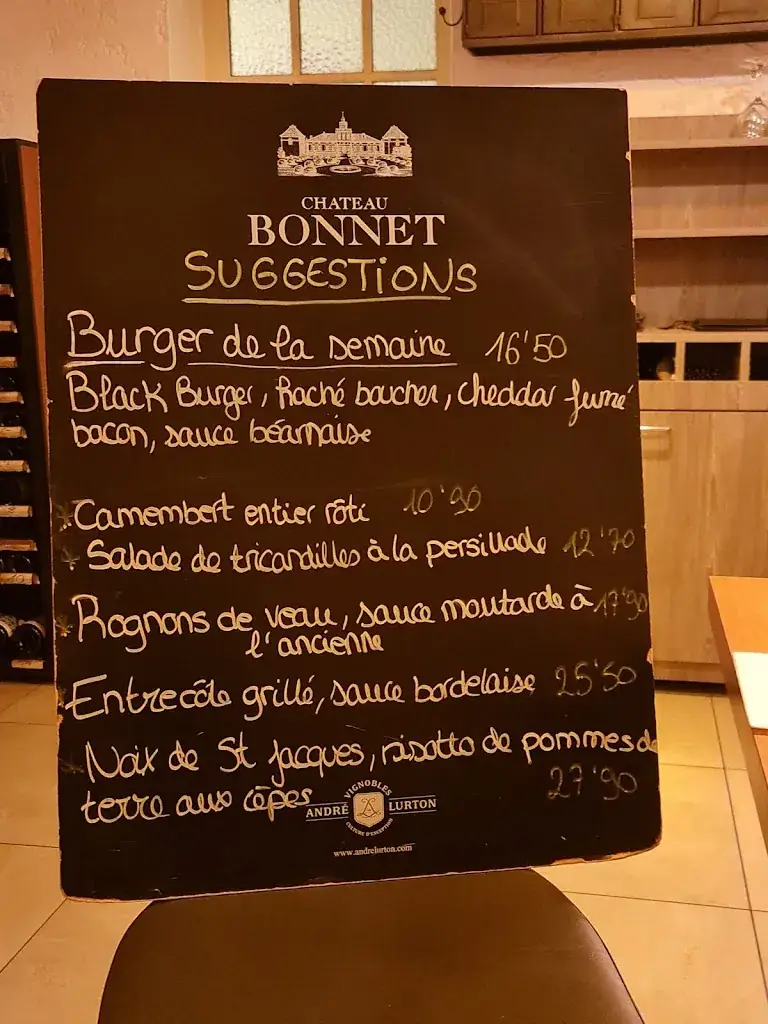 CHATEAU
BONNET
SUGGESTIONS
Burger de la semaine 16'50
Black Burger, haché boucher, cheddar fumé
bacon, sauce béarnaise
* Camembert entier rôti 10'90
* Salade de tricandilles à la persillade 12'70
* Rognons de veau, sauce moutarde à 17'90
l'ancienne
* Entrecôte grillé, sauce bordelaise 25'50
* Noix de St Jacques, risotto de pommes de
terre aux cèpes 27'90
VIGNOBLES
ANDRÉ LURTON
CULTURE D'EXCEPTION
www.andrelurton.com